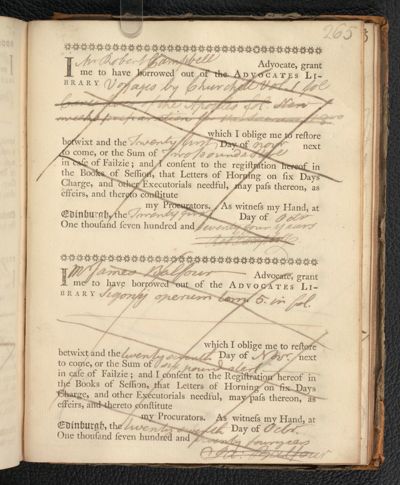 265
I Mr Robert Campbell Advocate, grant
me to have borrowed out of the ADVOCATES LI-
BRARY Voyages by Churchill Vol. 1 fol
of the Apostles fol New
preparation
which I oblige me to reſtore
betwixt and the Twenty first Day of Novr next
to come, or the Sum of Two pounds
in caſe of Failzie; and I conſent to the regiſtration hereof in
the Books of Seſſion, that Letters of Horning on ſix Days
Charge, and other Executorials needful, may paſs thereon, as
effeirs, and thereto conſtitute
my Procurators. As witneſs my Hand, at
Edinburgh, the Twenty first Day of Octr
One thouſand ſeven hundred and twenty four years
I Mr James Balfour Advocate, grant
me to have borrowed out of the ADVOCATES LI-
BRARY Sigonij operum tom 5. in fol.
which I oblige me to reſtore
betwixt and the twenty Day of Novr next
to come, or the Sum of pound
in caſe of Failzie; and I conſent to the Regiſtration hereof in
the Books of Seſſion, that Letters of Horning on ſix Days
Charge, and other Executorials needful, may paſs thereon, as
effeirs, and thereto conſtitute
my Procurators. As witneſs my Hand, at
Edinburgh, the twenty Day of Octr.
One thouſand ſeven hundred and twenty four years
Ja: Balfour